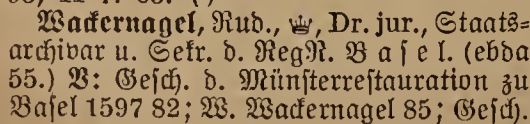 Wackernagel, Rud., ♕, Dr. jur., Staats-
archivar u. Sekr. d. RegR. Basel. (ebda
55.) V: Gesch. d. Münsterrestauration zu
Basel 1597 82; W. Wackernagel 85; Gesch.